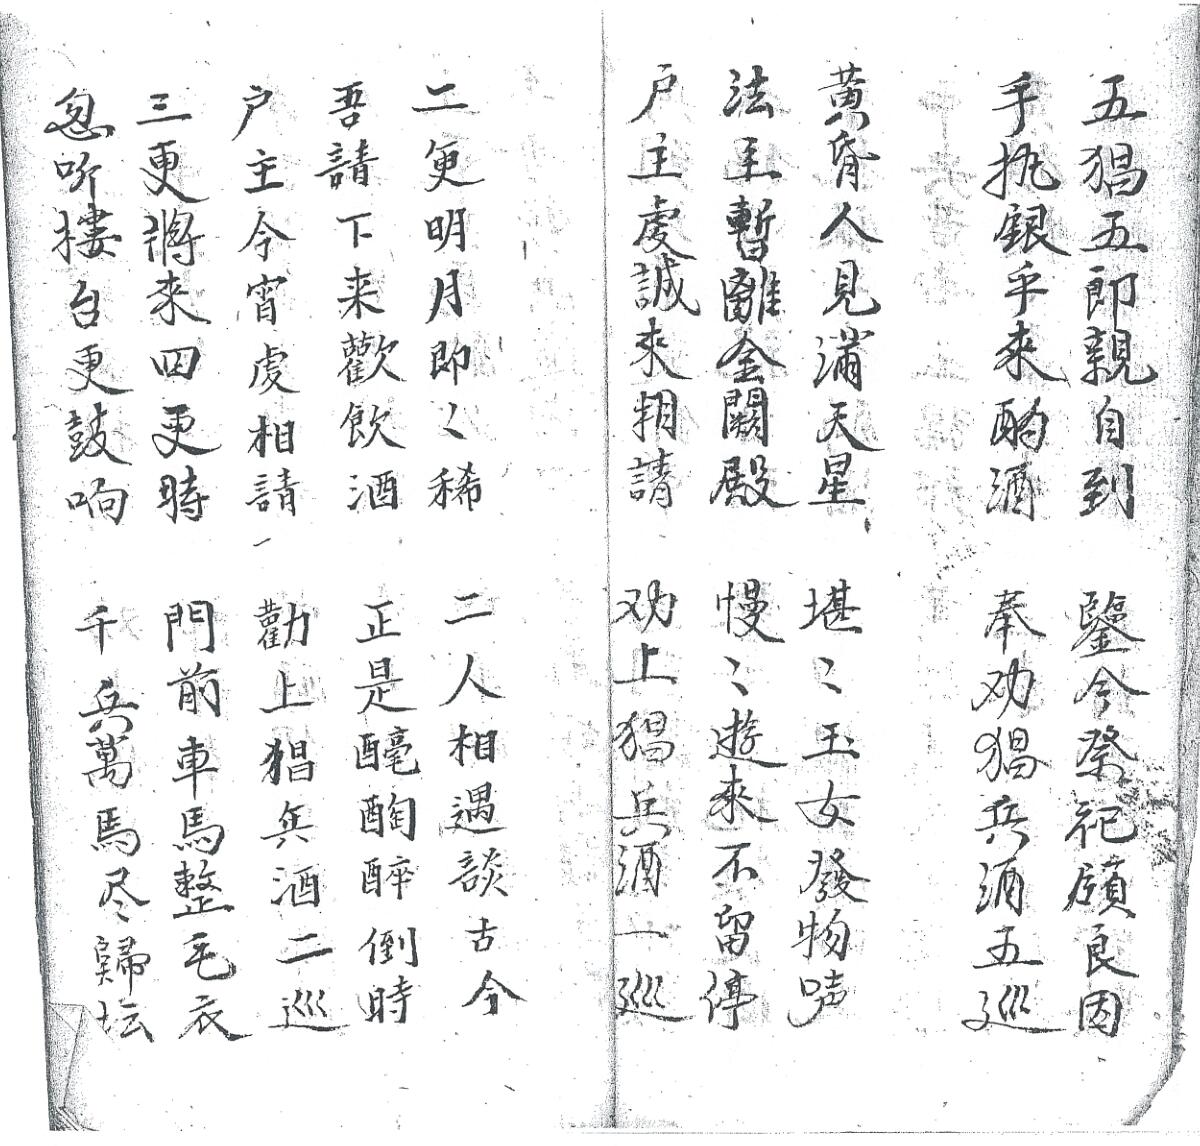 五猖五郎親自到　鑒今祭祀顧良因
手执銀乎來酌酒　奉劝猖兵酒五巡
黄昏人見滿天星　堪〻玉女發物声
法主暫離金闕殿　慢〻遊來不留停
户主虔誠來相請　劝上猖兵酒一巡
二更明月即〻稀　二人相遇談古今
吾請下来歡飲酒　正是酕酶醉倒時
户主今宵虔相請　勸上猖兵酒二巡
三更將來四更時　門前車馬整毛衣
忽听摟台更鼓响　千兵萬馬尽歸坛